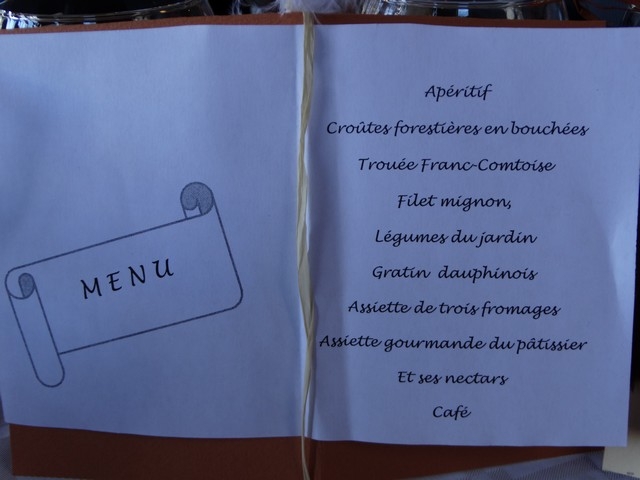 MENU
Apéritif
Croûtes forestières en bouchées
Trouée Franc-Comtoise
Filet mignon,
Légumes du jardin
Gratin dauphinois
Assiette de trois fromages
Assiette gourmande du pâtissier
Et ses nectars
Café